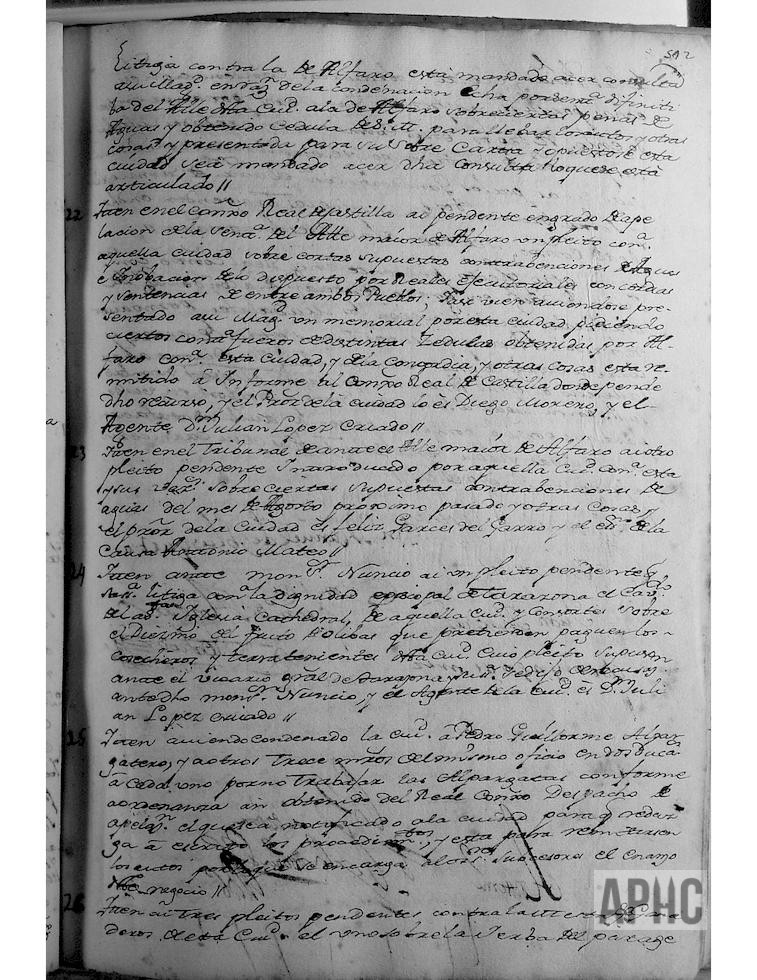 512
Litiga contra la de Alfaro esta mandado acer consulta
a su Magd. en raz.n de la condenacion echa por sent.a difiniti
ba del Alle. desta Ciu.d a la de Alfaro sobre ciertas penas de
Aguas y obtenido Cedula de S. M. para llebar los autos y otras
cosas y presentada para su sobre Carta y opuestose esta
ciudad se a mandado acer dha Consulta lo que se esta
articulado //
22 Iten en el Consso Real de Castilla ai pendente en grado de ape
lacion de la senn.a del Alle maior de Alfaro un pleito con.a
aquella ciudad sobre ciertas supuestas contrabenciones de Aguas
e Inobacion de lo dispuesto por Reales executoriales concordias
y sentencias de entre ambos Pueblos. Tan vien aviendose pre
sentado a su Magd. un memorial por esta ciudad pidiendo
ciertos contrafueros de distintas Zedulas obtenidas por Al
faro con.a esta Ciudad, y de la Concordia, y otras cosas esta re
mitido a Informe al Consso Real de Castilla donde pende
dho recurso, y el Pror de la ciudad lo es Diego Moreno, y el
Agente Dn. Julian Lopez Criado //
23 Iten en el Tribunal de ante el Alle maior de Alfaro ai otro
pleito pendente Introducido por aquella Ciu.d con.a esta
y sus vez.s sobre Ciertas supuestas contrabenciones de
aguas del mes de Agosto proximo pasado y otras Cosas, y
el pror de la Ciudad es feliz Garces del Garro y el es.no de la
Causa Antonio Mateo //
24 Iten ante mon.r Nuncio ai un pleito pendente q.
litiga con la dignidad episcopal de Tarazona el Cav.do
de la Sta. Iglesia Cathedral, de aquella Ciu.d y Consortes sobre
el Diezmo del fruto de olibas que pretenden paguen los
Cosecheros y terratenientes desta Ciu.d Cuio pleito
ante el vicario gral de Tarazona
ante dho mon.r Nuncio, y el Agente de la Ciu.d es Dn. Juli
an Lopez criado //
25 Iten aviendo condenado la Ciu.d a Pedro Guillorme Alpar
gatero, y a otros Trece mros del mismo oficio en dos Duca.s
a Cada uno por no Trabajar las Alpargatas conforme
a ordenanza an obtenido del Real Consso Despacho de
apelaz.n el que sea notificado a la ciudad para q. reduz
ga a escrito los procedim.tos, y esta para
los autos por lo que se encarga a los S.res subcesores el
negocio //
26 Iten ai Tres pleitos pendentes contra la Mesta de Gana
deros de esta Ciu.d el uno sobre la Yerba del parage
APHC